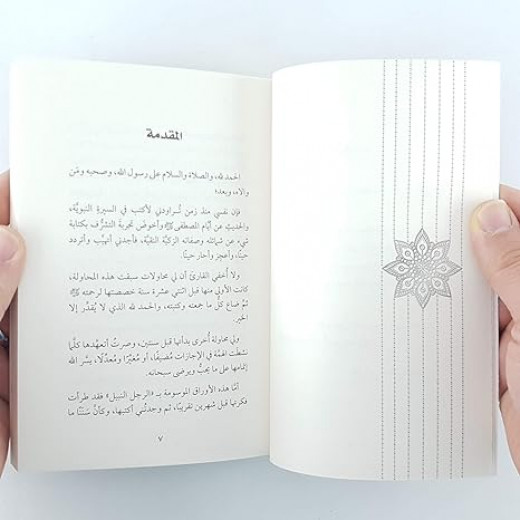 المقدمة
الحمد لله، والصلاة والسلام على رسول الله، وصحبه ومَن
والاه، وبعد؛
فإن نفسي منذ زمن تُراودني لأكتب في السيرة النبويَّة،
والحديث عن أيَّام المصطفى ﷺ وأخوض تجربة التشرُّف بكتابة
شيء عن شمائله وصفاته الزكيَّة النقيَّة، فأجدني أتهيَّب وأتردد
حينًا، وأعجز وأحار حينًا.
ولا أُخفي القارئ أن لي محاولات سبقت هذه المحاولة،
كانت الأولى منها قبل اثنتي عشرة سنة خصصتها لرحمته ﷺ
ثمَّ ضاع كلُّ ما جمعته وكتبته، والحمد لله الذي لا يُقدِّر إلا
الخير.
ولي محاولة أُخرى بدأتها قبل سنتين، وصرتُ أتعهَّدها كلَّما
نشطَت الهمَّة في الإجازات مُضيفًا، أو مُغيِّرًا ومُعدِّلًا، يسَّر الله
إتمامها على ما يحبُّ ويرضى سبحانه.
أمَّا هذه الأوراق الموسومة بـ «الرجل النبيل» فقد طرأت
فكرتها قبل شهرين تقريبًا، ثم وجدتُني أكتبها، وكأنَّ سَننًا ما
٧